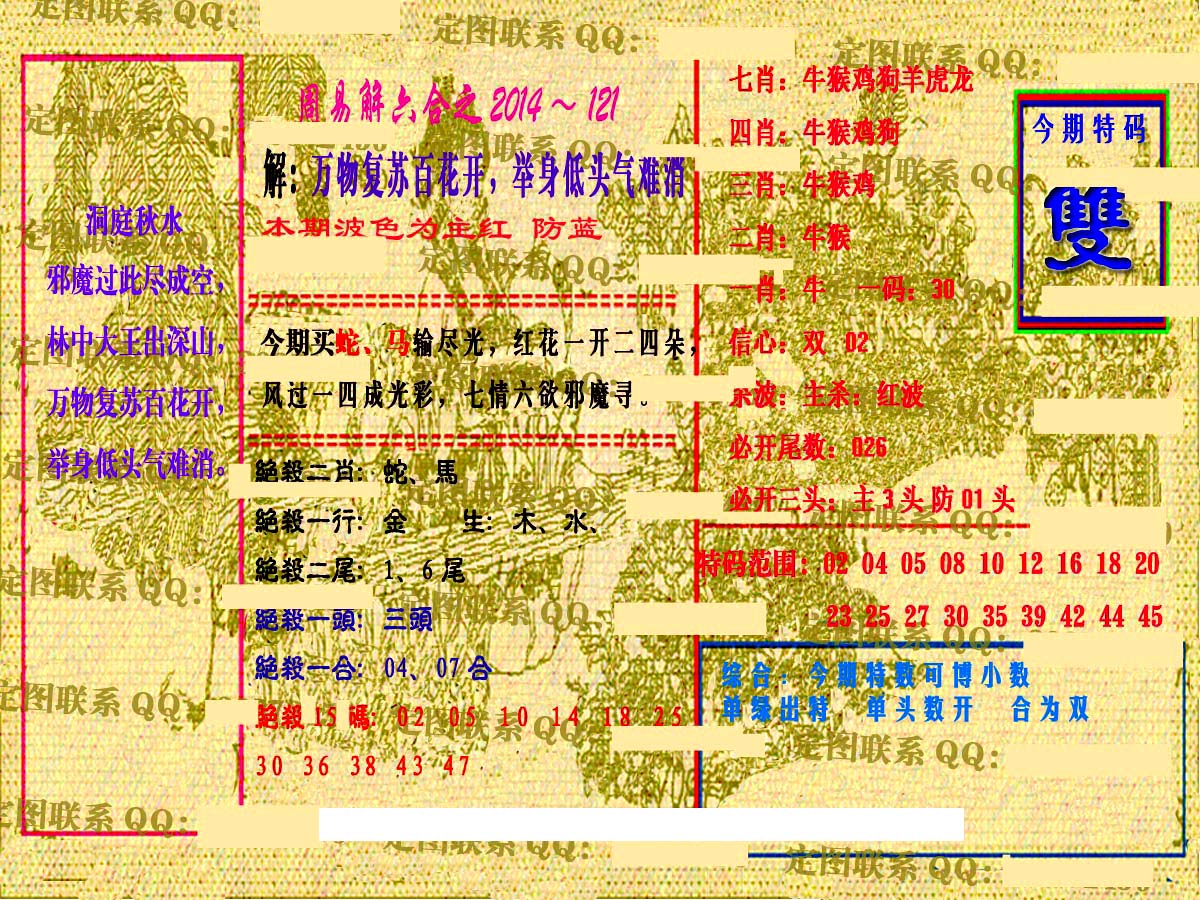 周易解六合之 2014～121
解：万物复苏百花开，举身低头气难消
本期波色为主红 防蓝
洞庭秋水
邪魔过此尽成空，
林中大王出深山，
万物复苏百花开，
举身低头气难消。
今期买蛇、马输尽光，红花一开二四朵，
风过一四成光彩，七情六欲邪魔寻。
絕殺二肖：蛇、馬
絕殺一行：金 生：木、水、
絕殺二尾：1、6尾
絕殺一頭：三頭
絕殺一合：04、07合
絕殺15碼：02 05 10 14 18 25
30 36 38 43 47
七肖：牛猴鸡狗羊虎龙
四肖：牛猴鸡狗
三肖：牛猴鸡
二肖：牛猴
一肖：牛 一码：30
信心：双 02
杀波：主杀：红波
必开尾数：026
必开三头：主3头防01头
今期特码
雙
特码范围：02 04 05 08 10 12 16 18 20
23 25 27 30 35 39 42 44 45
综合：今期特数可博小数
单绿出特 单头数开 合为双
定图联系 QQ：
定图联系 QQ：
定图联系 QQ：
定图联系 QQ：
定图联系 QQ：
定图联系 QQ：
定图联系 QQ：
定图联系 QQ：
定图联系 QQ：